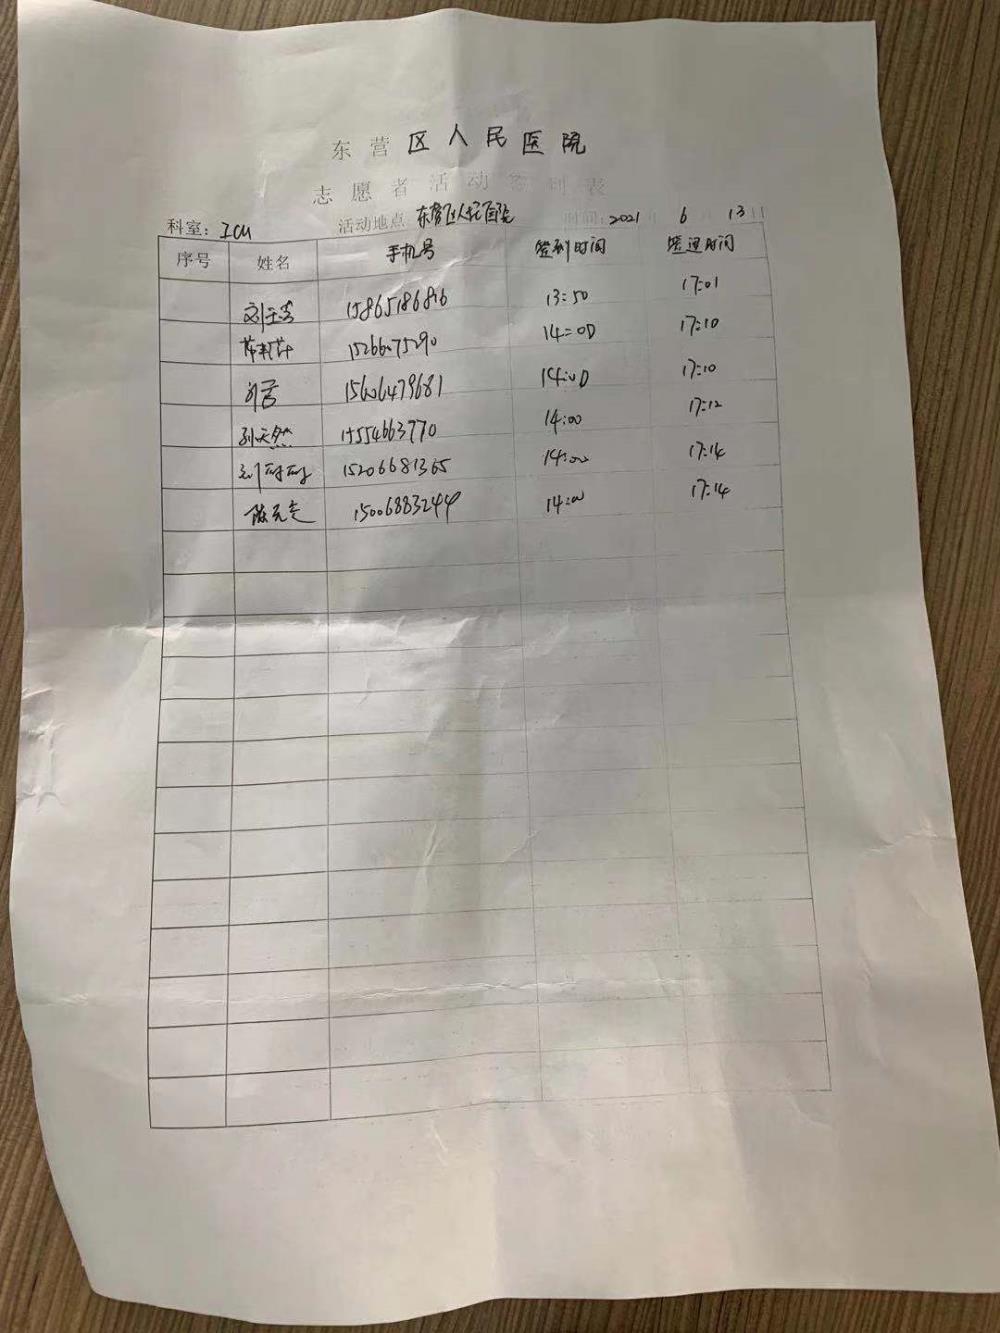 东营区人民医院
志愿者活动签到表
科室：ICU 活动地点 东营区人民医院 时间：2021 6 13日
序号 姓名 手机号 签到时间 签退时间
15865186816 13:50 17:01
15266075290 14:00 17:10
15606479681 14:00 17:10
孙天然 15554663770 14:00 17:12
15206681365 14:00 17:14
15006883244 14:00 17:14